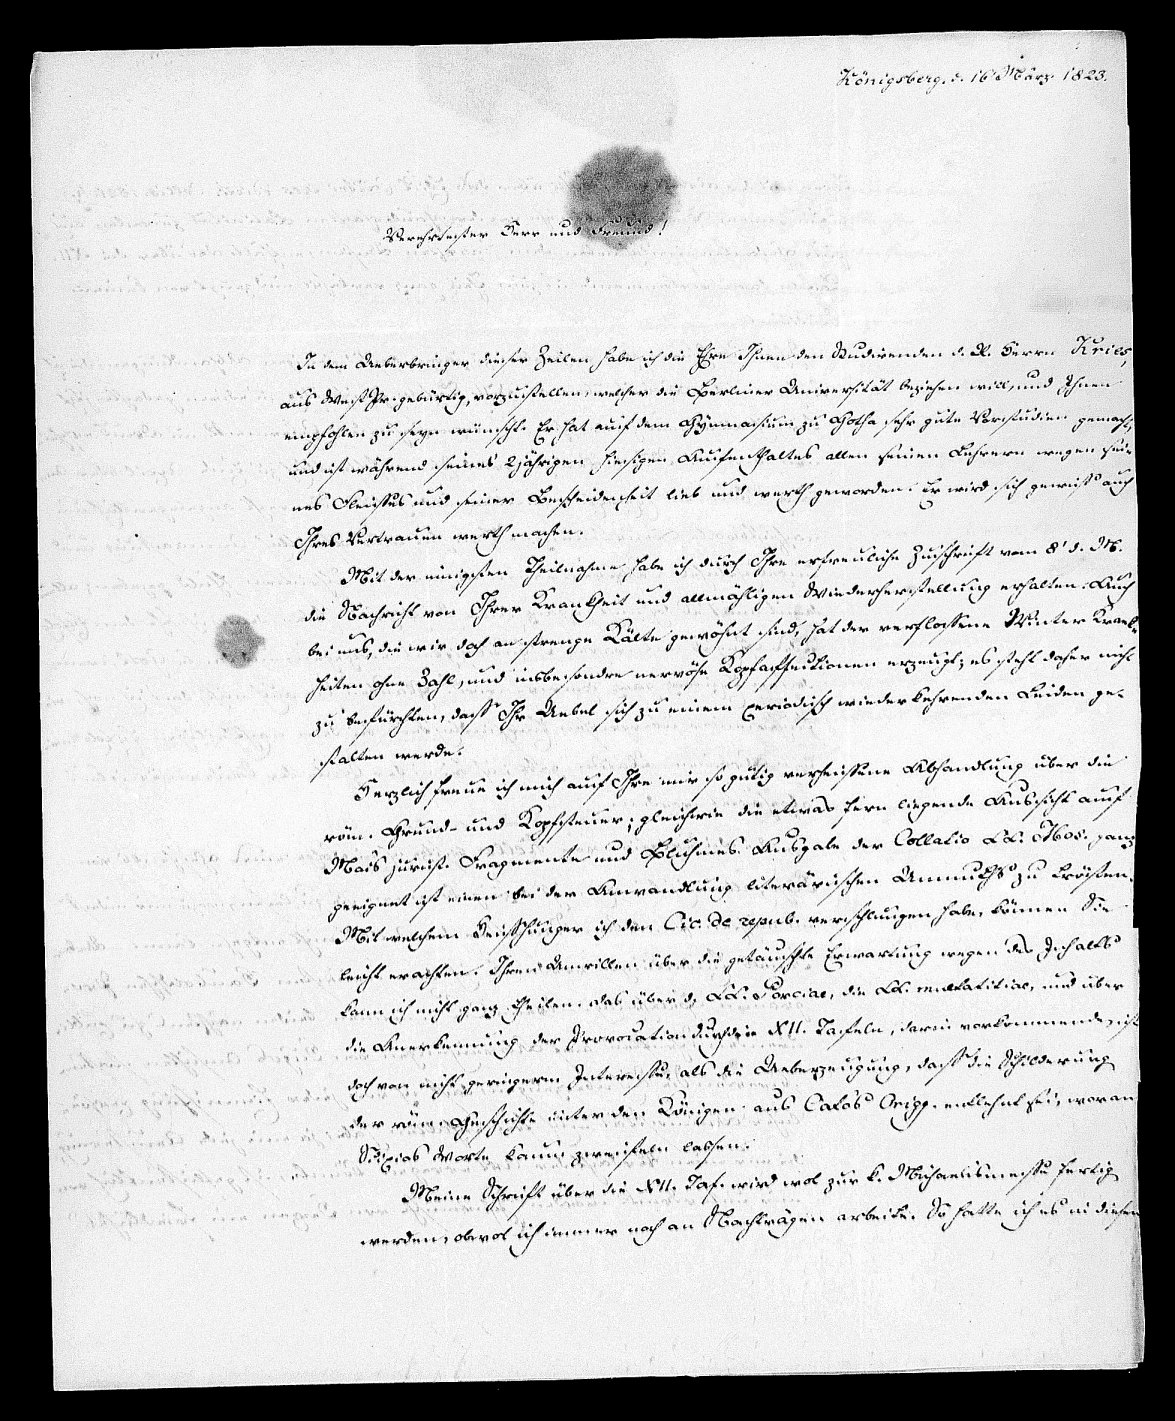 Königsberg, d. 16 März 1823.
Verehrtester Herr und Freund!
In dem Ueberbringer dieser Zeilen habe ich die Ehre Ihnen den Studirenden d. R. Herrn Kries,
aus West Pr. gebürtig, vorzustellen, welcher die Berliner Universität beziehen will, und Ihnen
empfohlen zu seyn wünscht. Er hat auf dem Gymnasium zu Gotha sehr gute Vorstudien gemacht,
und ist während seines 2jährigen hiesigen Aufenthaltes allen seinen Lehrern wegen sei-
nes Fleisses und seiner Bescheidenheit lieb und werth geworden. Er wird sich gewiss auch
Ihres Vertrauen werth machen.
Mit der innigsten Theilnahme habe ich durch Ihre erfreuliche Zuschrift vom 8t d. M.
die Nachricht von Ihrer Krankheit und allmähligen Wiederherstellung erhalten. Auch
bei uns, die wir doch an strenge Kälte gewöhnt sind, hat der verflossene Winter Krank-
heiten ohne Zahl, und insbesondre nervöse Kopfaffectionen erzeugt; es steht daher nicht
zu befürchten, dass Ihr Uebel sich zu einem periodisch wiederkehrenden Leiden ge-
stalten werde.
Herzlich freue ich mich auf Ihre mir so gütig verheissene Abhandlung über die
röm. Grund- und Kopfsteuer; gleichwie die etwas fern liegende Aussicht auf
Mai's jurist. Fragmente und Bluhmes Ausgabe der Collatio LL. Mos. ganz
geeignet ist einen bei der Anwandlung literärischen Unmuths zu trösten.
Mit welchem Heisshunger ich den Cic. de republ. verschlungen habe, können Sie
leicht erachten. Ihren Unwillen über die getäuschte Erwartung wegen des Inhalts
kann ich nicht ganz theilen. Das über d. LL. Porciae, die LL. centetitiae, und über
die Anerkennung der Provocation durch die XII. Tafeln, darin vorkommende, ist
doch von nicht geringerm Interesse, als die Ueberzeugung, dass die Schilderung
der röm. Geschichte unter den Königen aus Catos Origg. entlehnt sei, woran
Scipios Worte kaum zweifeln lassen.
Meine Schrift über die XII. Taf. wird wol zur k. Michaelismesse fertig
werden, obwol ich immer noch an Nachträgen arbeite. So hatte ich es in diesem